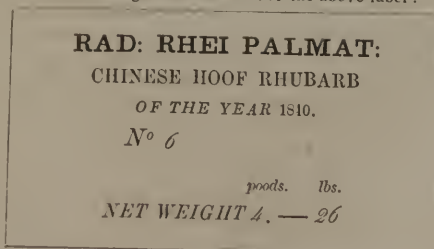 of the above label:
RAD: RHEI PALMAT:
CHINESE HOOF RHUBARB
OF THE YEAR 1840.
No 6
poods. lbs.
NET WEIGHT 4. — 26